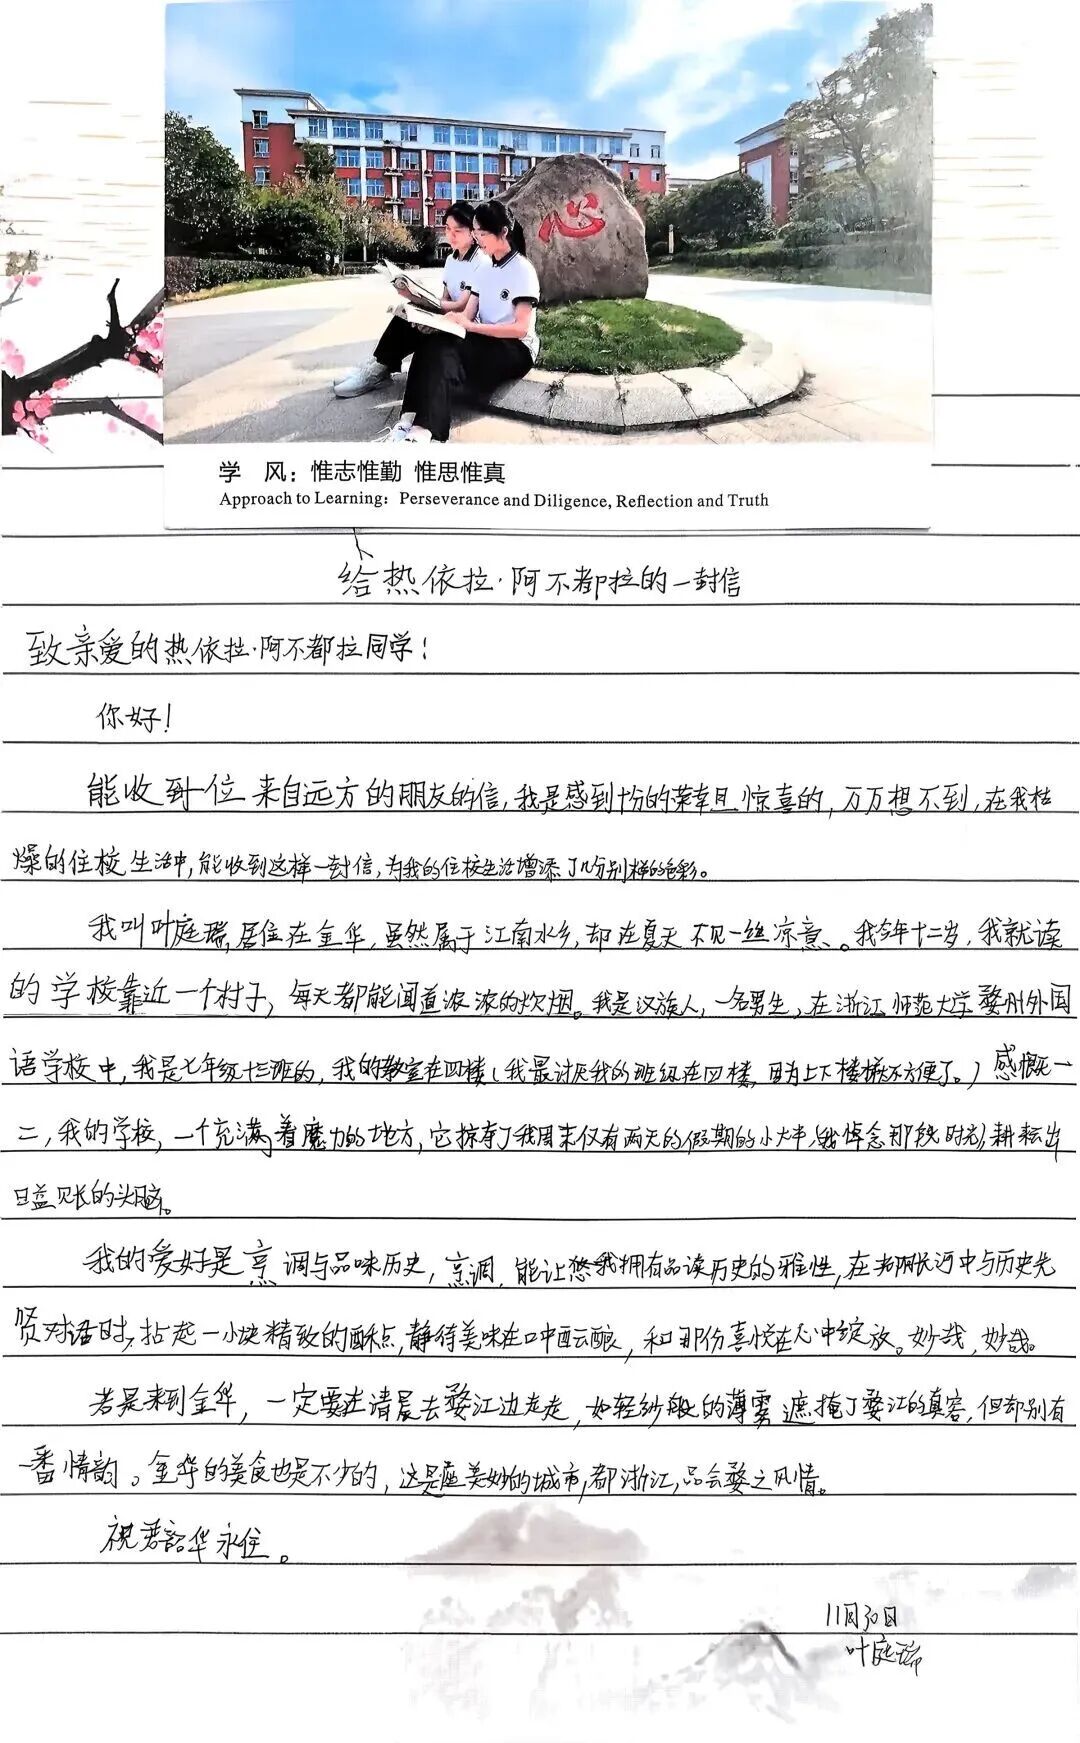 心
学　风：惟志惟勤 惟思惟真
Approach to Learning: Perseverance and Diligence, Reflection and Truth
给热依拉·阿不都拉的一封信
致亲爱的热依拉·阿不都拉同学！
你好！
能收到一位来自远方的朋友的信，我是感到十份的荣幸且惊喜的，万万想不到，在我枯
燥的住校生活中，能收到这样一封信，为我的住校生活增添了几分别样的色彩。
我叫叶庭瑞，居住在金华，虽然属于江南水乡，却在夏天不见一丝凉意。我今年十二岁，我就读
的学校靠近一个村子，每天都能闻道浓浓的炊烟。我是汉族人，一名男生，在浙江师范大学婺州外国
语学校中，我是七年级十三班的，我的教室在四楼（我最讨厌我的班级在四楼，因为上下楼梯太不方便了。）感慨一
二，我的学校，一个充满着魔力的地方，它掠夺了我周末仅有两天的假期的小大半（我悼念那段时光），耕耘出
日益见长的头脑。
我的爱好是烹调与品味历史，烹调，能让我拥有品读历史的雅性，在书海长河中与历史先
贤对话时，拈起一小块精致的酥点，静待美味在口中酝酿，和那份喜悦在心中绽放。妙哉，妙哉。
若是来到金华，一定要在清晨去婺江边走走，如轻纱般的薄雾遮掩了婺江的真容，但却别有
一番情韵。金华的美食也是不少的，这是座美妙的城市，都浙江，品会婺之风情。
祝君韶华永住。
11月30日
叶庭瑞